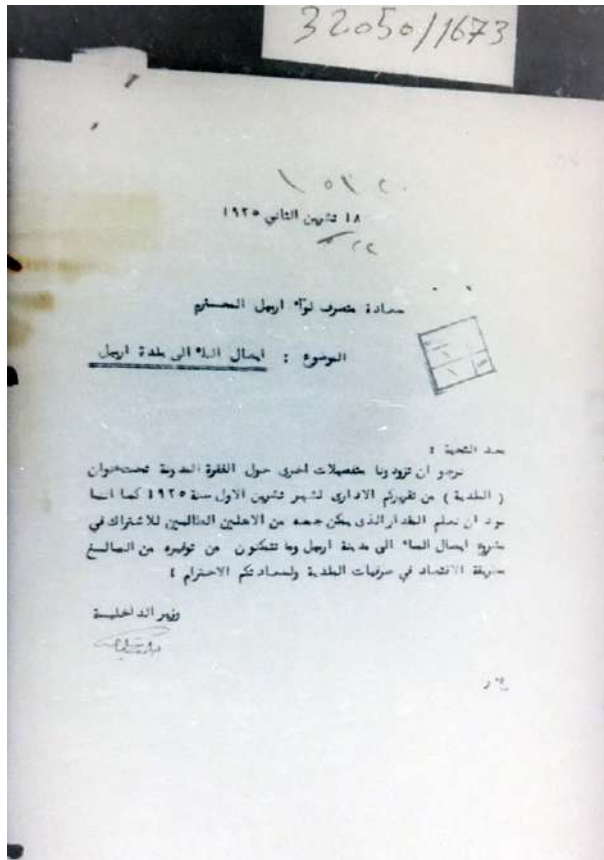 32050/1673
١٥١٢٠
١٨ تشرين الثاني ١٩٢٥
٢٢
سعادة متصرف لوآء اربيل المحترم
الموضوع : ايصال المآء الى بلدة اربيل
بعد التحية :
نرجو ان تزودونا بتفصيلات اخرى حول الفقرة المدونة تحت عنوان
( البلدية ) من تقريركم الادارى لشهر تشرين الاول سنة ١٩٢٥ كما اننا
نود ان نعلم المقدار الذى يمكن جمعه من الاهلين الطالبين للاشتراك في
مشروع ايصال المآء الى مدينة اربيل وما تتمكنون من توفيره من المبالغ
بطريقة الاقتصاد في صرفيات البلدية ولسعادتكم الاحترام ؛
وزير الداخليــة